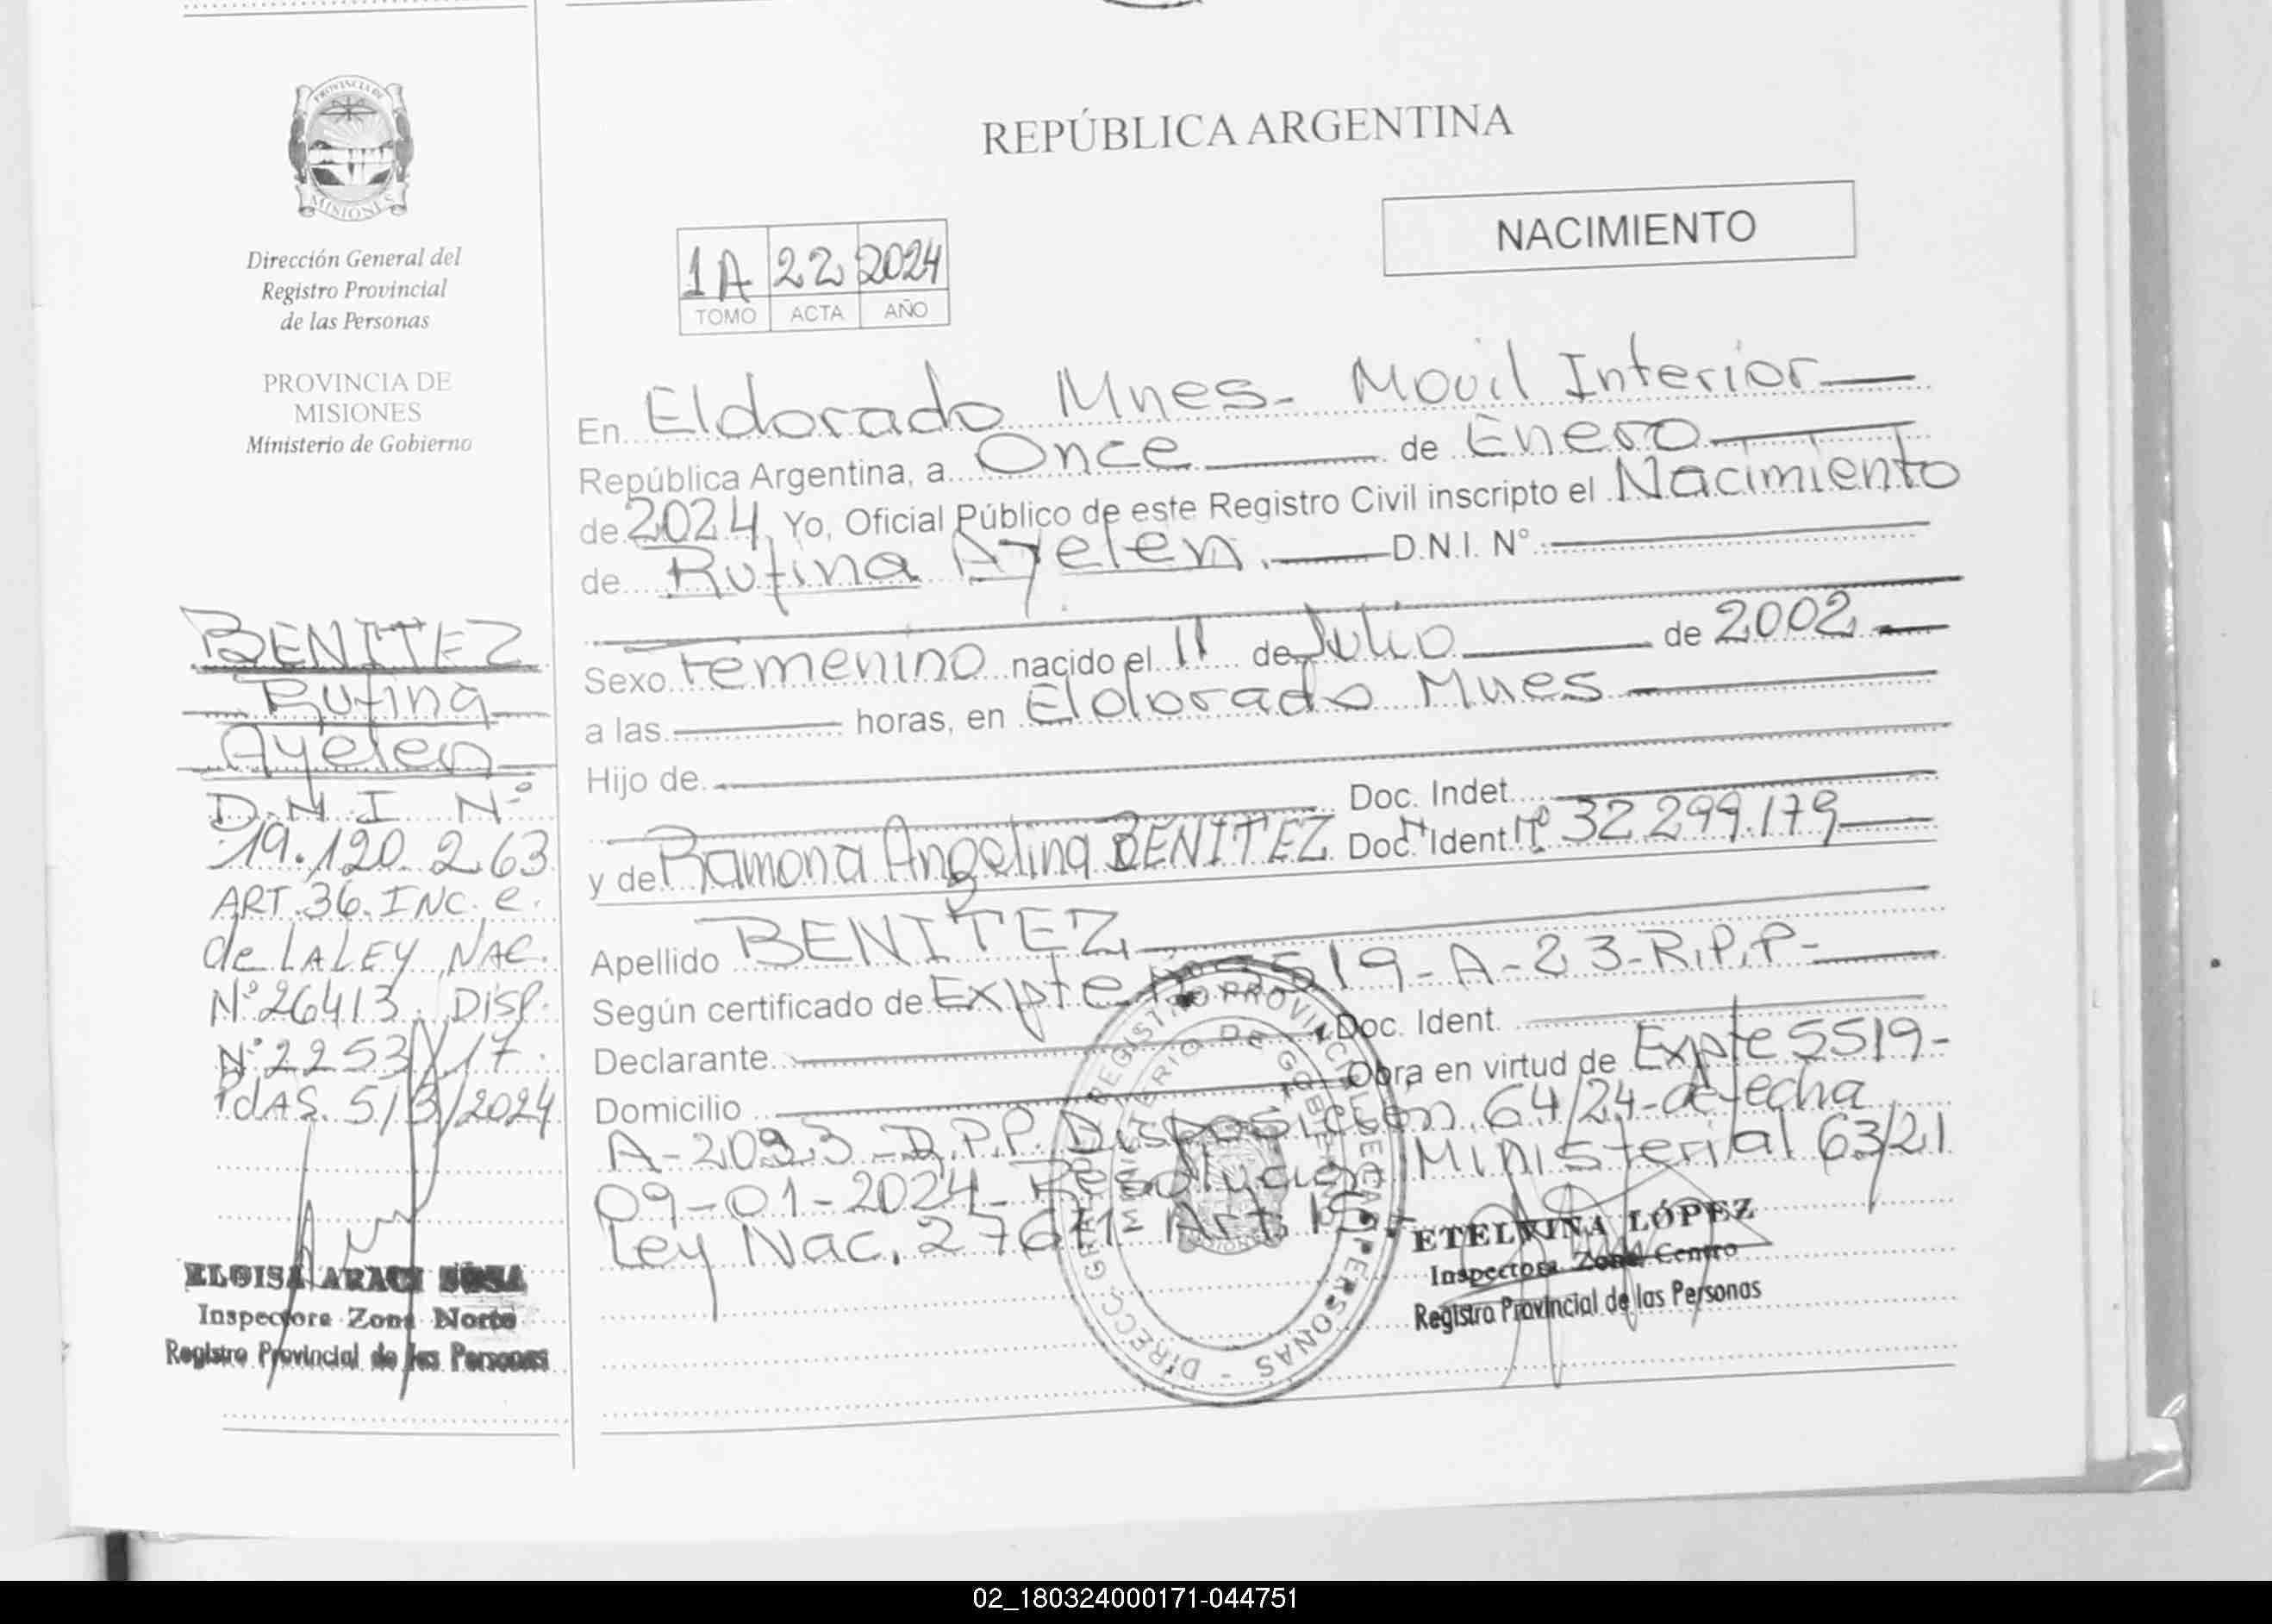 PROVINCIA DE
MISIONES
Dirección General del
Registro Provincial
de las Personas
PROVINCIA DE
MISIONES
Ministerio de Gobierno
BENITEZ
Rufina
Ayelen
D.N.I N°
19.120.263
ART.36.INC.e.
de LA LEY NAC.
N° 26413. DISP.
N° 2253/17.
PdAS. 5/3/2024
ELOISA ARACI SOSA
Inspectora Zona Norte
Registro Provincial de las Personas
REPÚBLICA ARGENTINA
NACIMIENTO
1A 22 2024
TOMO ACTA AÑO
En Eldorado Mnes- Movil Interior
República Argentina, a Once de Enero
de 2024 Yo, Oficial Público de este Registro Civil inscripto el Nacimiento
de Rufina Ayelen. D.N.I. N°
Sexo Femenino nacido el 11 de Julio de 2002
a las horas, en Eldorado Mnes
Hijo de
Doc. Indet.
y de Ramona Angelina BENITEZ Doc. Ident N° 32.299.179
Apellido BENITEZ
Según certificado de Expte N° 5519-A-23-R.P.P-
Declarante Doc. Ident.
Domicilio Obra en virtud de Expte 5519-
A-2023-D.P.P. Disposición 64/24-de fecha
09-01-2024- Resolución Ministerial 63/21
Ley Nac. 27611- Art. 15.
DIRECC. GRAL. REGISTRO PROVINCIAL DE LAS PERSONAS
MINISTERIO DE GOBIERNO
MISIONES
ETELVINA LÓPEZ
Inspectora Zona Centro
Registro Provincial de las Personas
02_180324000171-044751